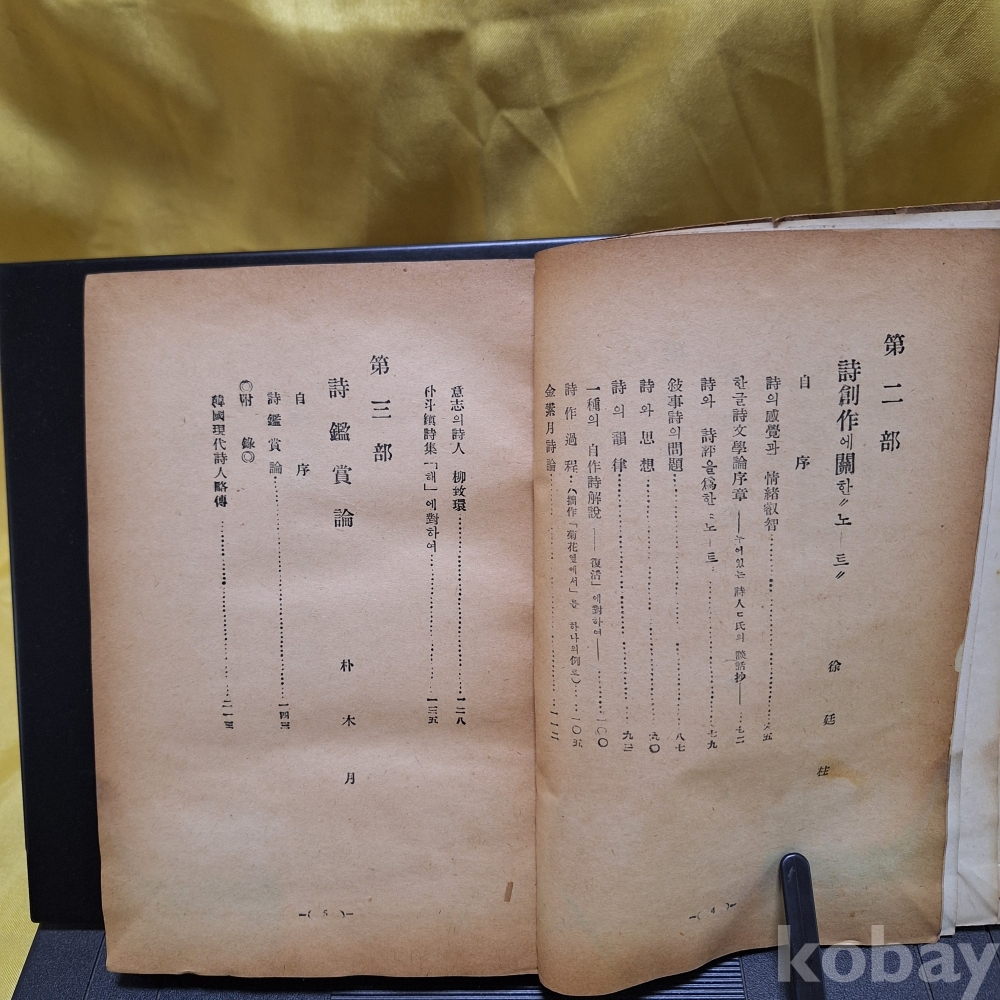 第二部
詩創作에關한"노ー트" 徐廷柱
自序
詩의感覺과 情緖와叡智……六五
한글詩文學論序章——누어있는 詩人ㄷ氏의 談話抄——七二
詩와 詩評을爲한「노ー트」……七九
敍事詩의問題……八七
詩와思想……九〇
詩의韻律……九三
一種의 自作詩解說——「復活」에對하여——一〇〇
詩作過程……(拙作「菊花옆에서」를 하나의例로)……一〇五
金素月詩論……一一二
意志의詩人 柳致環……一二八
朴斗鎭詩集「해」에對하여……一三五
第三部
詩鑑賞論 朴木月
自序
詩鑑賞論……一四三
◎附錄◎
韓國現代詩人略傳……二一三
kobay